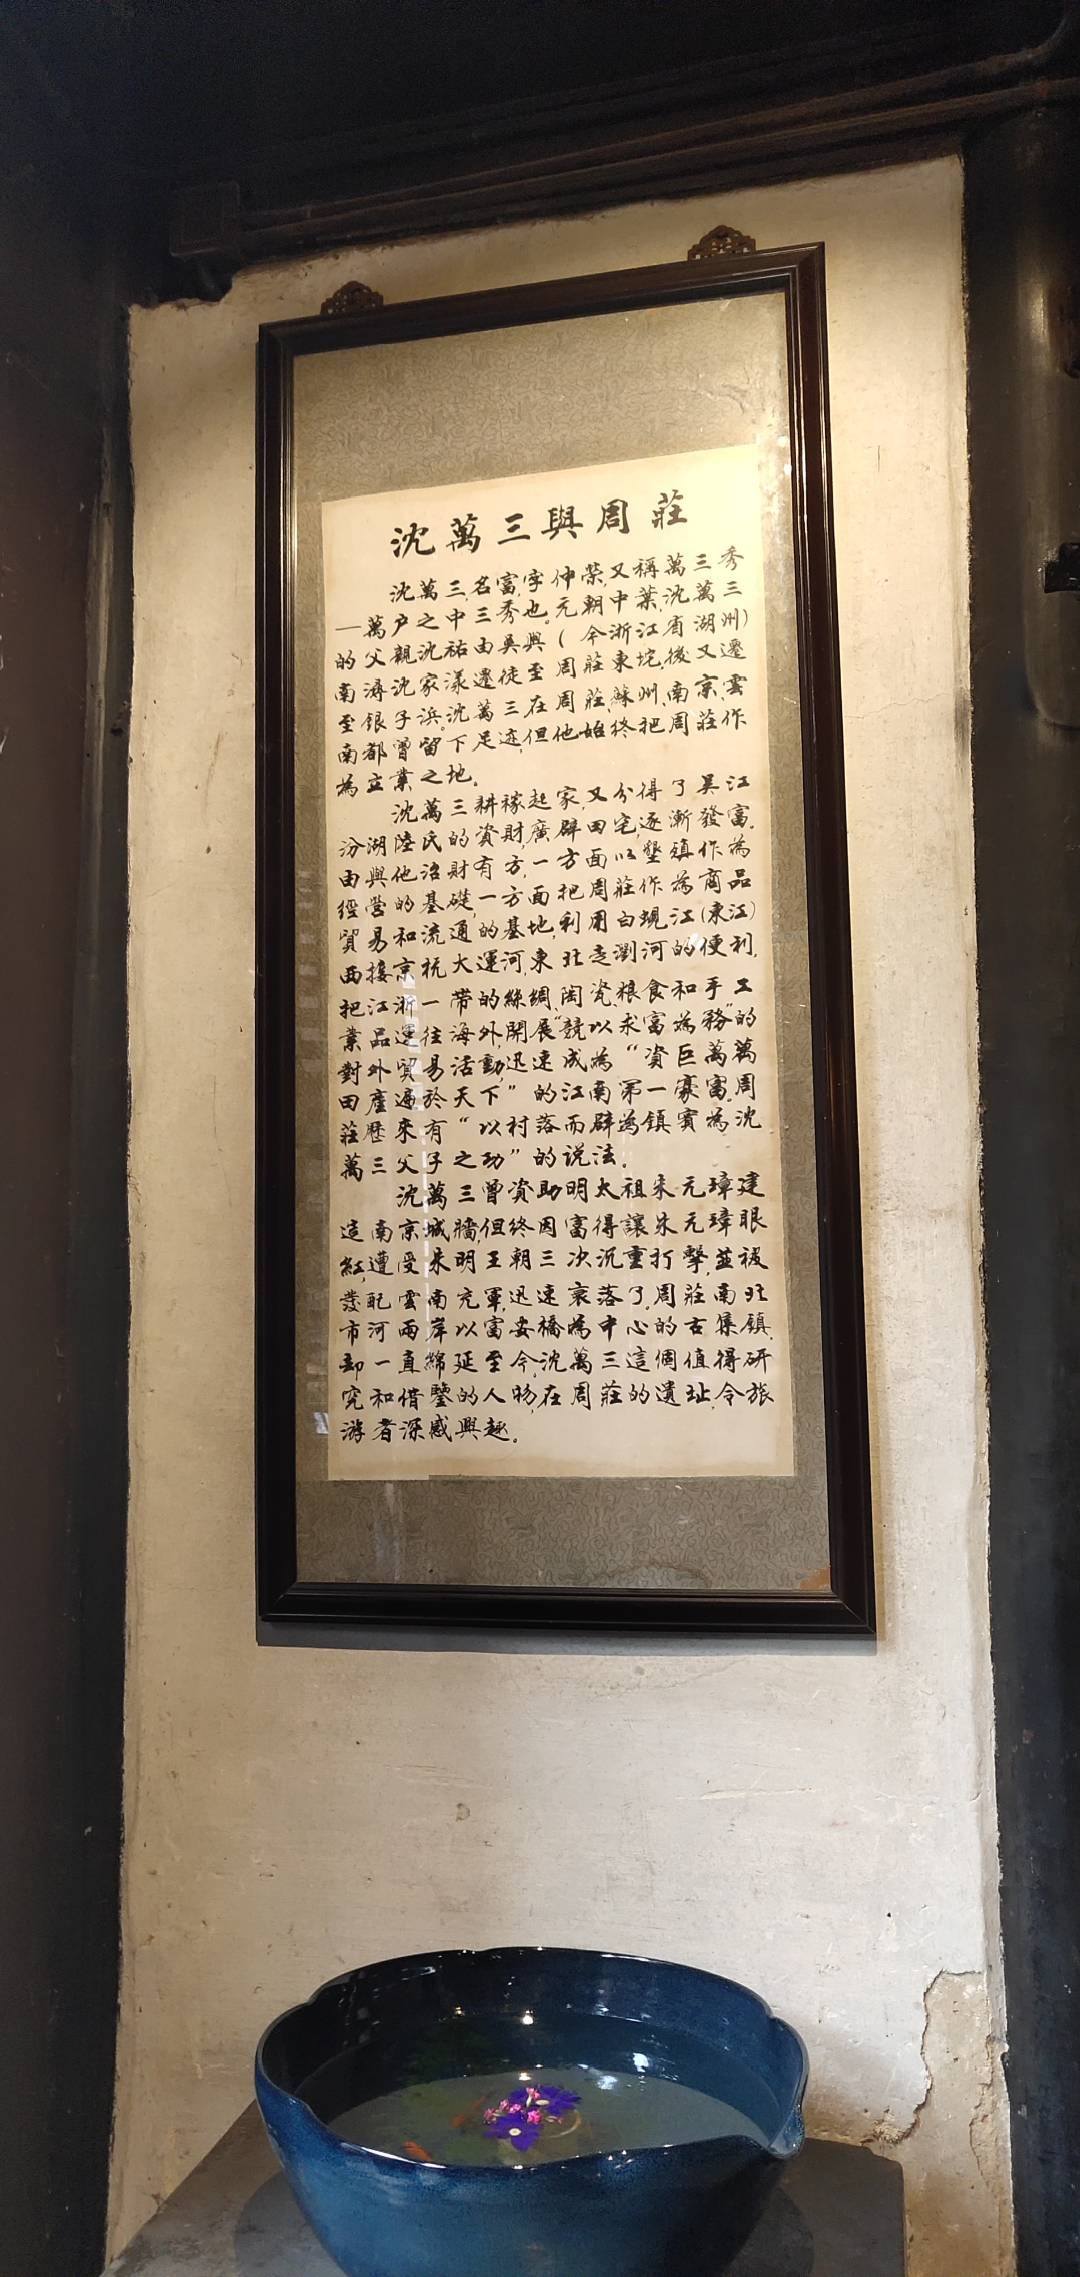 沈萬三與周莊
沈萬三,名富,字仲榮,又稱萬三秀
—萬户之中三秀也。元朝中葉,沈萬三
的父親沈祐由吳興(今浙江省湖州)
南潯沈家漾遷徒至周莊東垞,後又遷
至銀子浜。沈萬三在周莊,蘇州,南京,雲
南都曾留下足迹,但他始终把周莊作
為立業之地。
沈萬三耕稼起家,又分得了吴江
汾湖陸氏的資財,廣辟田宅,逐漸發富。
由與他治財有方,一方面以墾殖作為
經營的基礎,一方面把周莊作為商品
貿易和流通的基地,利用白蜆江(東江)
西接京杭大運河,東北走瀏河的便利,
把江浙一带的絲綢,陶瓷,粮食和手工
業品運往海外,開展“競以求富為務”的
對外貿易活動,迅速成為“資巨萬萬
田產遍於天下”的江南第一豪富,周
莊歷來有“以村落而辟為鎮實為沈
萬三父子之功”的说法。
沈萬三曾資助明太祖朱元璋建
造南京城牆,但终因富得讓朱元璋眼
紅,遭受朱明王朝三次沉重打擊,並被
發配雲南充軍,迅速衰落了,周莊南北
市河兩岸以富安橋為中心的古集鎮,
却一直綿延至今,沈萬三這個值得研
究和借鑒的人物,在周莊的遺址,令旅
游者深感興趣。